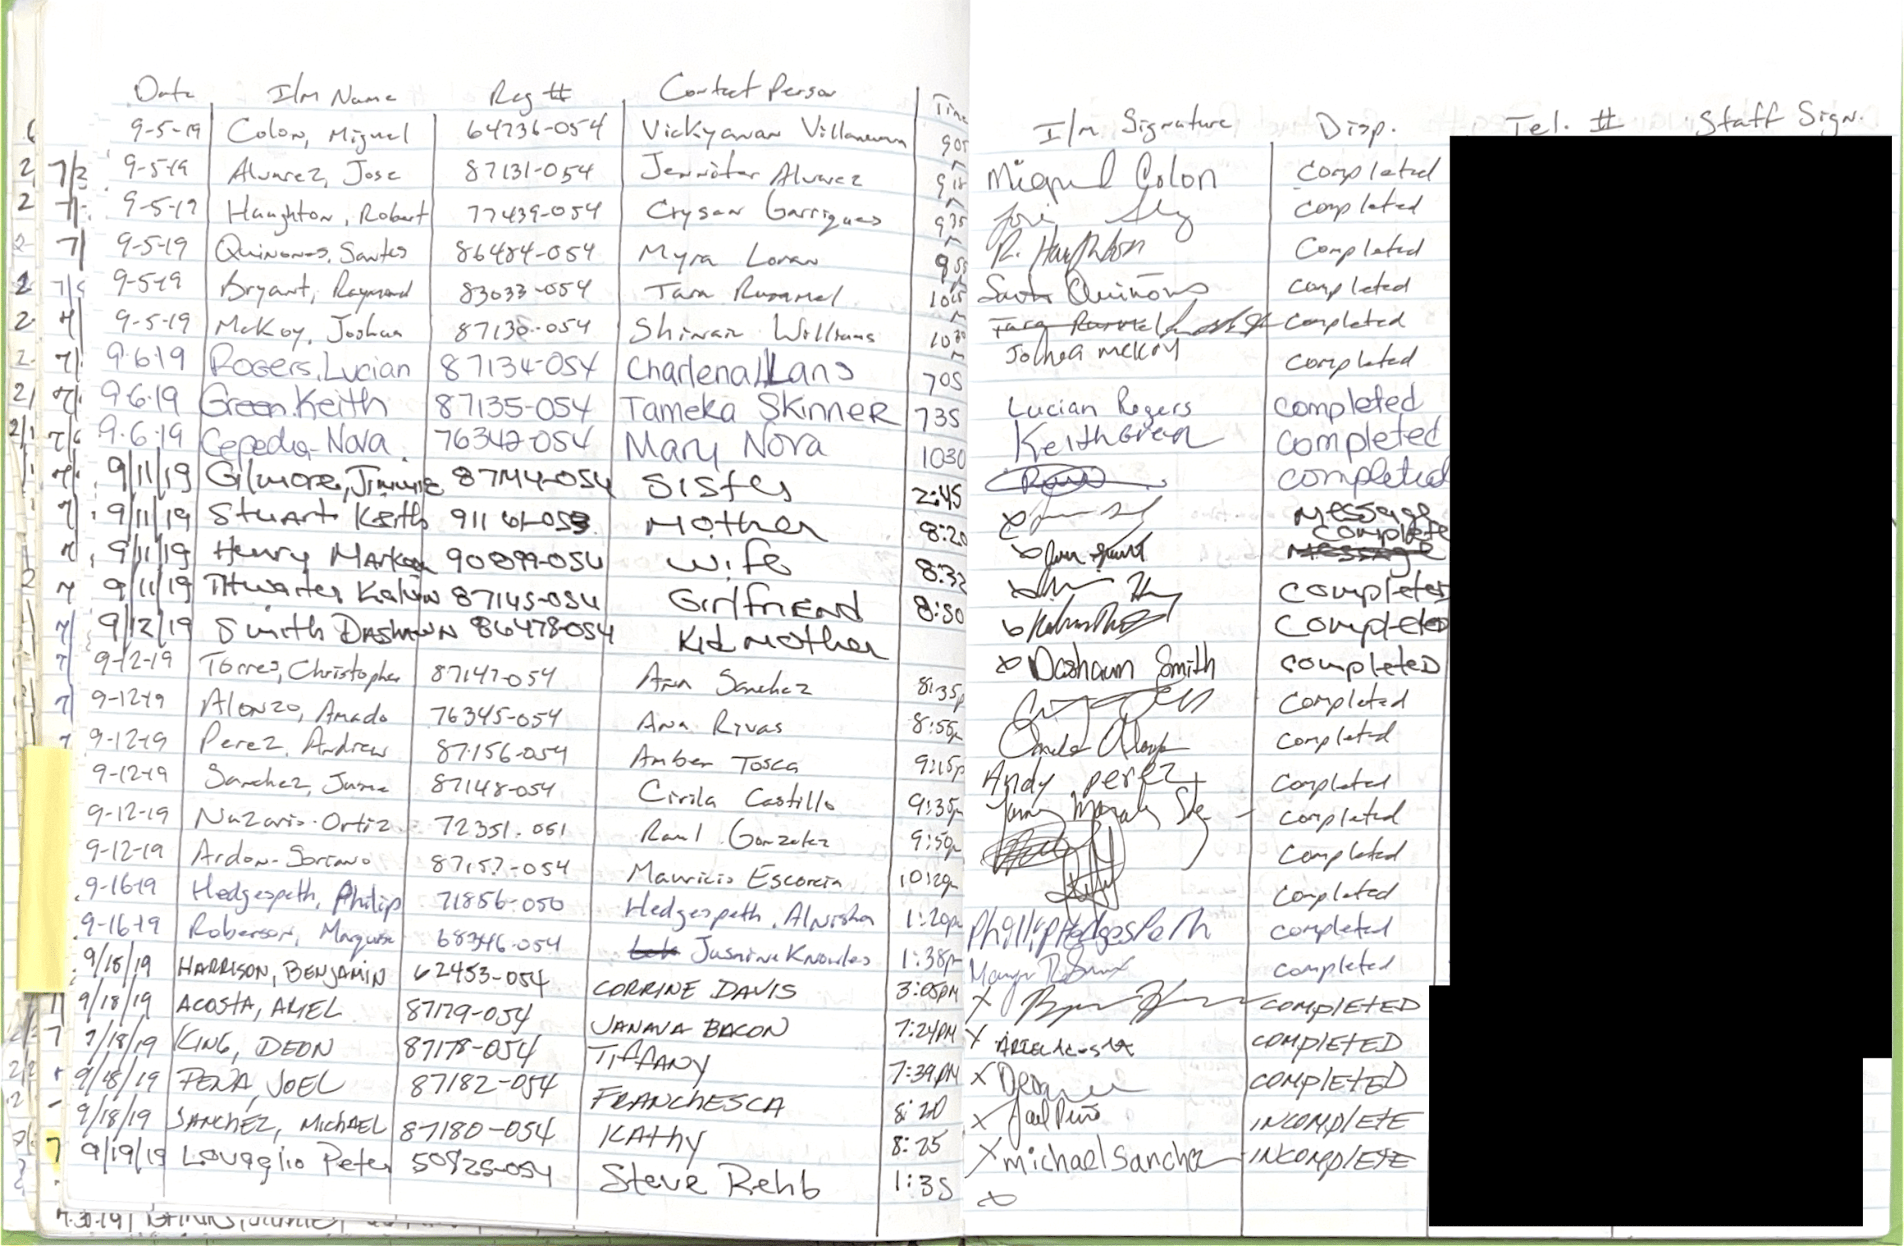 Date I/m Name Reg # Contact Person Time I/m Signature Disp. Tel. # Staff Sign.
9-5-19 Colon, Miguel 64736-054 Vickyanan Villanueva 905 Miguel Colon Completed
9-5-19 Alvarez, Jose 87131-054 Jennifer Alvarez 918 Completed
9-5-19 Haughton, Robert 77439-054 Crysan Garrigues 935 R. Haughton Completed
9-5-19 Quinones, Santos 86484-054 Myra Loran 955 Quiñons Completed
9-5-19 Bryant, Raymond 83033-054 Tara Rummel Completed
9-5-19 McKoy, Joshua 87130-054 Williams 1030 Joshua McKoy Completed
9.6.19 Rogers, Lucian 87134-054 Charlena 705 Lucian Rogers completed
9.6.19 Green, Keith 87135-054 Tameka Skinner 735 Keith Green completed
9.6.19 Cepeda-Nova 76342-054 Mary Nova 1030 completed
9/11/19 Gilmore, Jimmie 87144-054 Sister 2:45 Message
9/11/19 Stuart Keith 91161-053 Mother 8:20 complete
9/11/19 Henry 90899-054 wife 8:32 completed
9/11/19 Kalvin 87145-054 Girlfriend 8:50 completed
9/12/19 Smith Dashawn 86478-054 Kid mother Dashawn Smith completed
9-12-19 Torres, Christopher 87147-054 Ana Sanchez 8:35p Completed
9-12-19 Alonzo, Amado 76345-054 Ana Rivas 8:55p Completed
9-12-19 Perez, Andrew 87156-054 Amber Tosca 9:15p Andy perez Completed
9-12-19 Sanchez, Jaime 87148-054 Cirila Castillo 9:35p Completed
9-12-19 Nazario-Ortiz 72351-051 Raul Gonzalez 9:50p Completed
9-12-19 Ardon-Soriano 87157-054 Mauricio Escorcia 10:20p Completed
9-16-19 Hedgespeth, Philip 71856-050 Hedgespeth, Alnisha 1:20pm Phyllip Hedgespeth completed
9-16-19 Roberson, Marquise 68346-054 Jasmine Knowles 1:38p completed
9/18/19 HARRISON, BENJAMIN 62453-054 CORRINE DAVIS 3:05PM X COMPLETED
9/18/19 ACOSTA, ARIEL 87179-054 JANAVA BACON 7:24PM X ARIEL ACOSTA COMPLETED
9/18/19 KING, DEON 87178-054 TIFFANY 7:39PM X COMPLETED
9/18/19 PEÑA, JOEL 87182-054 FRANCHESCA 8:20 X Joel Peña INCOMPLETE
9/18/19 SANCHEZ, MICHAEL 87180-054 KATHY 8:25 X michael Sanchez INCOMPLETE
9/19/19 Lovaglio Peter 50925-054 Steve Rehb 1:35 X